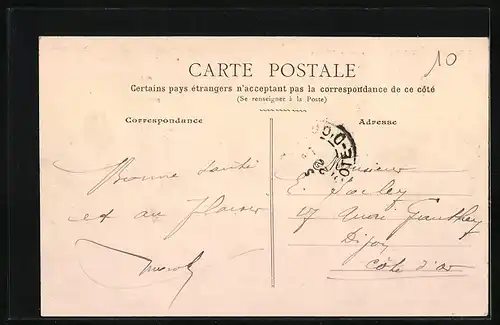 10
CARTE POSTALE
Certains pays étrangers n'acceptent pas la correspondance de ce côté
(Se renseigner à la Poste)
Correspondance
Adresse
Bonne santé
et au plaisir
Monsieur
E.
17 Quai
Dijon
Côte d'or